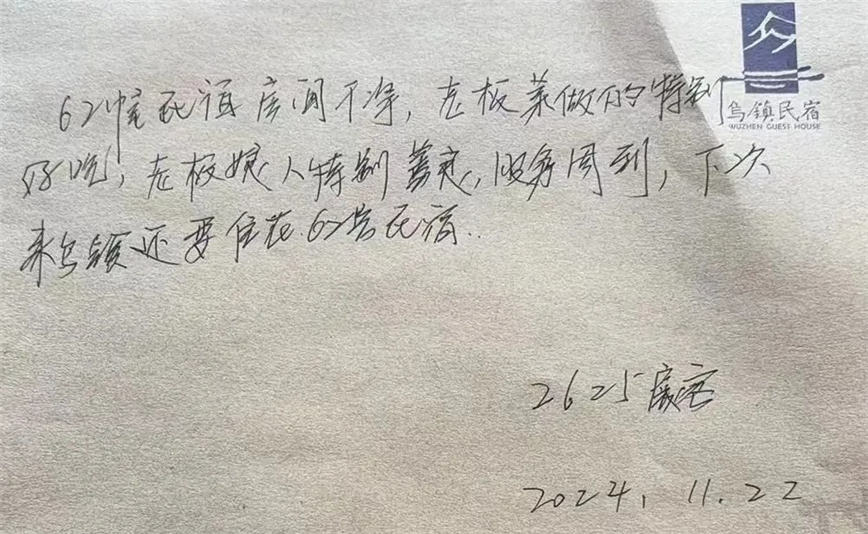 乌镇民宿
WUZHEN GUEST HOUSE
62幢民宿房间干净,老板菜做的特别
好吃,老板娘人特别善良,服务周到,下次
来乌镇还要住在62号民宿..
2625房客
2024.11.22